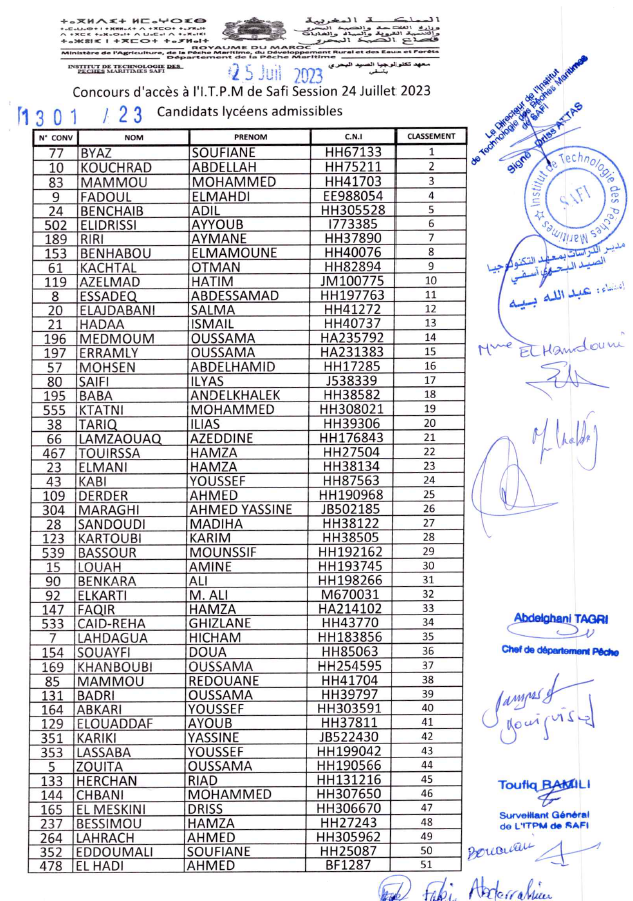 ROYAUME DU MAROC
Ministère de l'Agriculture, de la Pêche Maritime, du Développement Rural et des Eaux et Forêts
Département de la Pêche Maritime
INSTITUT DE TECHNOLOGIE DES
PECHES MARITIMES SAFI
معهد تكنولوجيا الصيد البحري
بآسفي
25 Juil 2023
Concours d'accès à l'I.T.P.M de Safi Session 24 Juillet 2023
1301 / 23 Candidats lycéens admissibles
N° CONV NOM PRENOM C.N.I CLASSEMENT
77 BYAZ SOUFIANE HH67133 1
10 KOUCHRAD ABDELLAH HH75211 2
83 MAMMOU MOHAMMED HH41703 3
9 FADOUL ELMAHDI EE988054 4
24 BENCHAIB ADIL HH305528 5
502 ELIDRISSI AYYOUB I773385 6
189 RIRI AYMANE HH37890 7
153 BENHABOU ELMAMOUNE HH40076 8
61 KACHTAL OTMAN HH82894 9
119 AZELMAD HATIM JM100775 10
8 ESSADEQ ABDESSAMAD HH197763 11
20 ELAJDABANI SALMA HH41272 12
21 HADAA ISMAIL HH40737 13
196 MEDMOUM OUSSAMA HA235792 14
197 ERRAMLY OUSSAMA HA231383 15
57 MOHSEN ABDELHAMID HH17285 16
80 SAIFI ILYAS J538339 17
195 BABA ANDELKHALEK HH38582 18
555 KTATNI MOHAMMED HH308021 19
38 TARIQ ILIAS HH39306 20
66 LAMZAOUAQ AZEDDINE HH176843 21
467 TOUIRSSA HAMZA HH27504 22
23 ELMANI HAMZA HH38134 23
43 KABI YOUSSEF HH87563 24
109 DERDER AHMED HH190968 25
304 MARAGHI AHMED YASSINE JB502185 26
28 SANDOUDI MADIHA HH38122 27
123 KARTOUBI KARIM HH38505 28
539 BASSOUR MOUNSSIF HH192162 29
15 LOUAH AMINE HH193745 30
90 BENKARA ALI HH198266 31
92 ELKARTI M. ALI M670031 32
147 FAQIR HAMZA HA214102 33
533 CAID-REHA GHIZLANE HH43770 34
7 LAHDAGUA HICHAM HH183856 35
154 SOUAYFI DOUA HH85063 36
169 KHANBOUBI OUSSAMA HH254595 37
85 MAMMOU REDOUANE HH41704 38
131 BADRI OUSSAMA HH39797 39
164 ABKARI YOUSSEF HH303591 40
129 ELOUADDAF AYOUB HH37811 41
351 KARIKI YASSINE JB522430 42
353 LASSABA YOUSSEF HH199042 43
5 ZOUITA OUSSAMA HH190566 44
133 HERCHAN RIAD HH131216 45
144 CHBANI MOHAMMED HH307650 46
165 EL MESKINI DRISS HH306670 47
237 BESSIMOU HAMZA HH27243 48
264 LAHRACH AHMED HH305962 49
352 EDDOUMALI SOUFIANE HH25087 50
478 EL HADI AHMED BF1287 51
Le Directeur de l'Institut
de Technologie des Pêches Maritimes
de SAFI
Signé Driss ATTAS
Institut de Technologie des Pêches Maritimes
SAFI
مدير الدراسات بمعهد التكنولوجيا
الصيد البحري آسفي
إمضاء: عبد الله بيه
Mme El Hamdouni
Abdelghani TAGRI
Chef de département Pêche
Toufiq BAMILI
Surveillant Général
de L'ITPM de SAFI